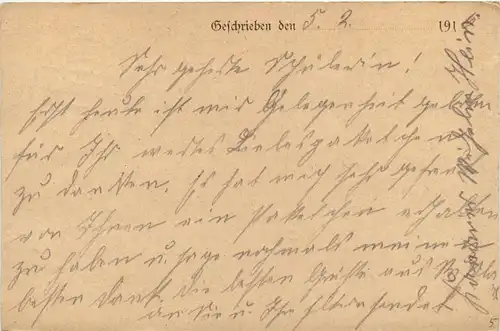 Geschrieben den 5. 2. 191
Sehr geehrte Schülerin!
Erst heute ist mir Gelegenheit geboten
für Ihr wertes Liebespaketchen
zu danken. Es hat mich sehr gefreut
von Ihnen ein Paketchen erhalten
zu haben u. sage nochmals meinen
besten Dank. Die besten Grüße aus
an Sie u. Ihre Eltern sendet